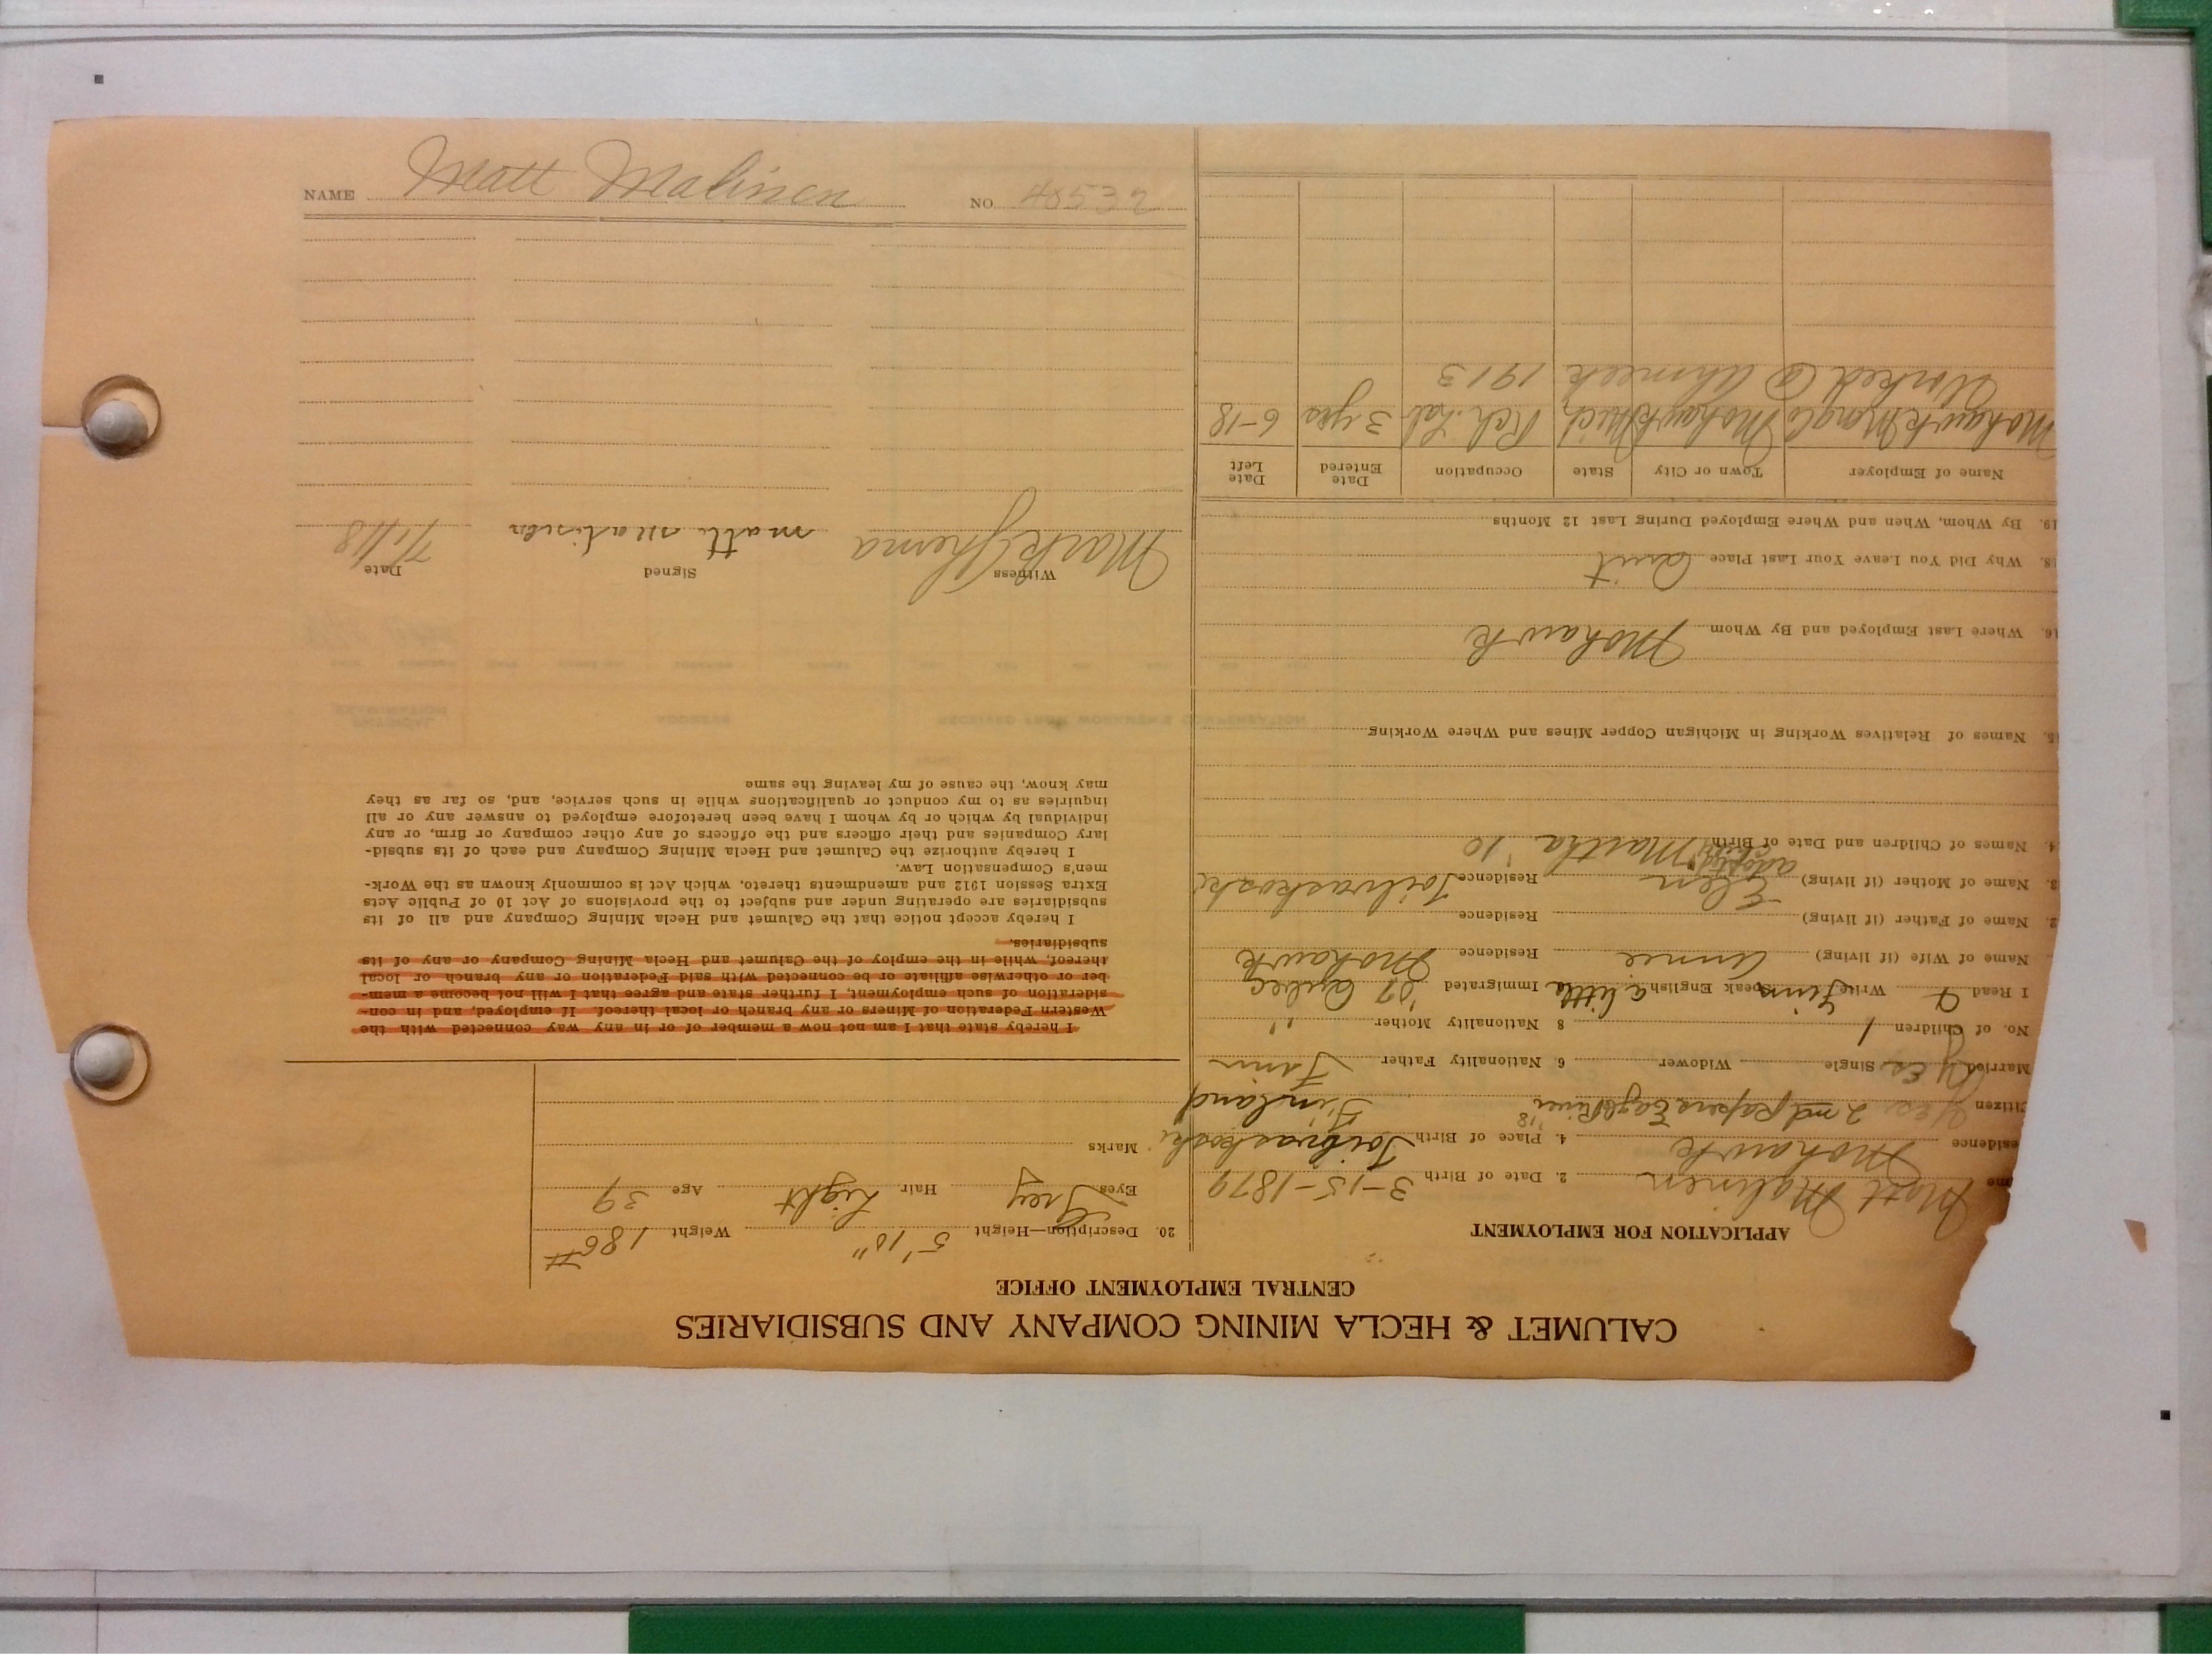 CALUMET & HECLA MINING COMPANY AND SUBSIDIARIES
CENTRAL EMPLOYMENT OFFICE
APPLICATION FOR EMPLOYMENT
me Matt Malinen 2. Date of Birth 3-15-1879
esidence Mohawk 4. Place of Birth
Citizen Yes 2nd papers Eagle River '18 Finland
Married Yes Single Widower 6. Nationality Father Finn
No. of Children 1 8 Nationality Mother "
I Read Write Finn Speak English a little Immigrated '07 Quebec
Name of Wife (if living) Annie Residence Mohawk
2. Name of Father (if living) Residence
3. Name of Mother (if living) Elen Residence
4. Names of Children and Date of Birth adopted child Martha '10
5. Names of Relatives Working in Michigan Copper Mines and Where Working
16. Where Last Employed and By Whom Mohawk
18. Why Did You Leave Your Last Place Quit
19. By Whom, When and Where Employed During Last 12 Months
Name of Employer Town or City State Occupation Date Entered Date Left
Mohawk Mohawk Mich 3 yrs 6-18
Worked @ Ahmeek 1913
20. Description—Height 5'10" Weight 186#
Eyes Grey Hair Light Age 39
Marks
I hereby state that I am not now a member of or in any way connected with the
Western Federation of Miners or any branch or local thereof. If employed, and in con-
sideration of such employment, I further state and agree that I will not become a mem-
ber or otherwise affiliate or be connected with said Federation or any branch or local
thereof, while in the employ of the Calumet and Hecla Mining Company or any of its
subsidiaries.
I hereby accept notice that the Calumet and Hecla Mining Company and all of its
subsidiaries are operating under and subject to the provisions of Act 10 of Public Acts
Extra Session 1912 and amendments thereto, which Act is commonly known as the Work-
men's Compensation Law.
I hereby authorize the Calumet and Hecla Mining Company and each of its subsid-
iary Companies and their officers and the officers of any other company or firm, or any
individual by which or by whom I have been heretofore employed to answer any or all
inquiries as to my conduct or qualifications while in such service, and, so far as they
may know, the cause of my leaving the same
Witness Signed Date
matti malinen
NAME Matt Malinen NO 48532